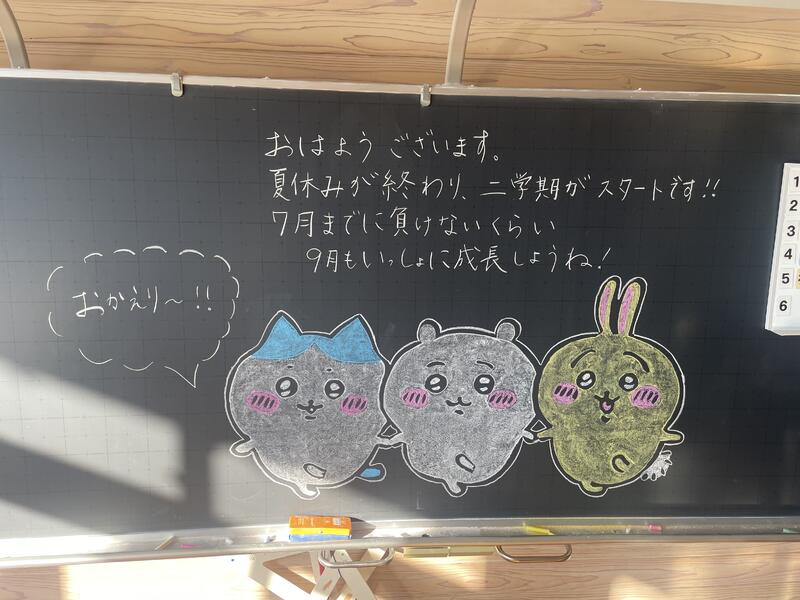 おはようございます。
夏休みが終わり、二学期がスタートです!!
7月までに負けないくらい
9月もいっしょに成長しようね!
おかえり〜!!
1
2
3
4
5
6